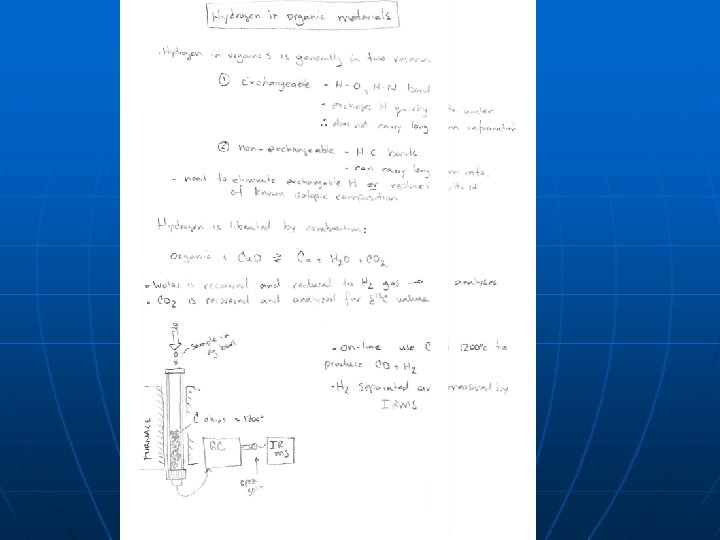 Hydrogen in organic materials
· Hydrogen in organics is generally in two
① Exchangeable - H-O, H-N bond
- exchages H quickly water
∴ does not carry long information
② non-exchangeable - H-C bonds
- can carry long info
- need to eliminate exchangable H or replace
of known isotopic composition
Hydrogen is liberated by combustion:
Organic + CuO ⇄ Cu + H2O + CO2
• Water is recovered and reduced to H2 gas → analyses
• CO2 is recovered and analyzed for δ13C values
sample in
Ag boat
• on-line use C 1200°C to
produce CO + H2
• H2 separated measured by
IRMS
FURNACE
C chips ~ 1200°
GC
IR
MS
open
split